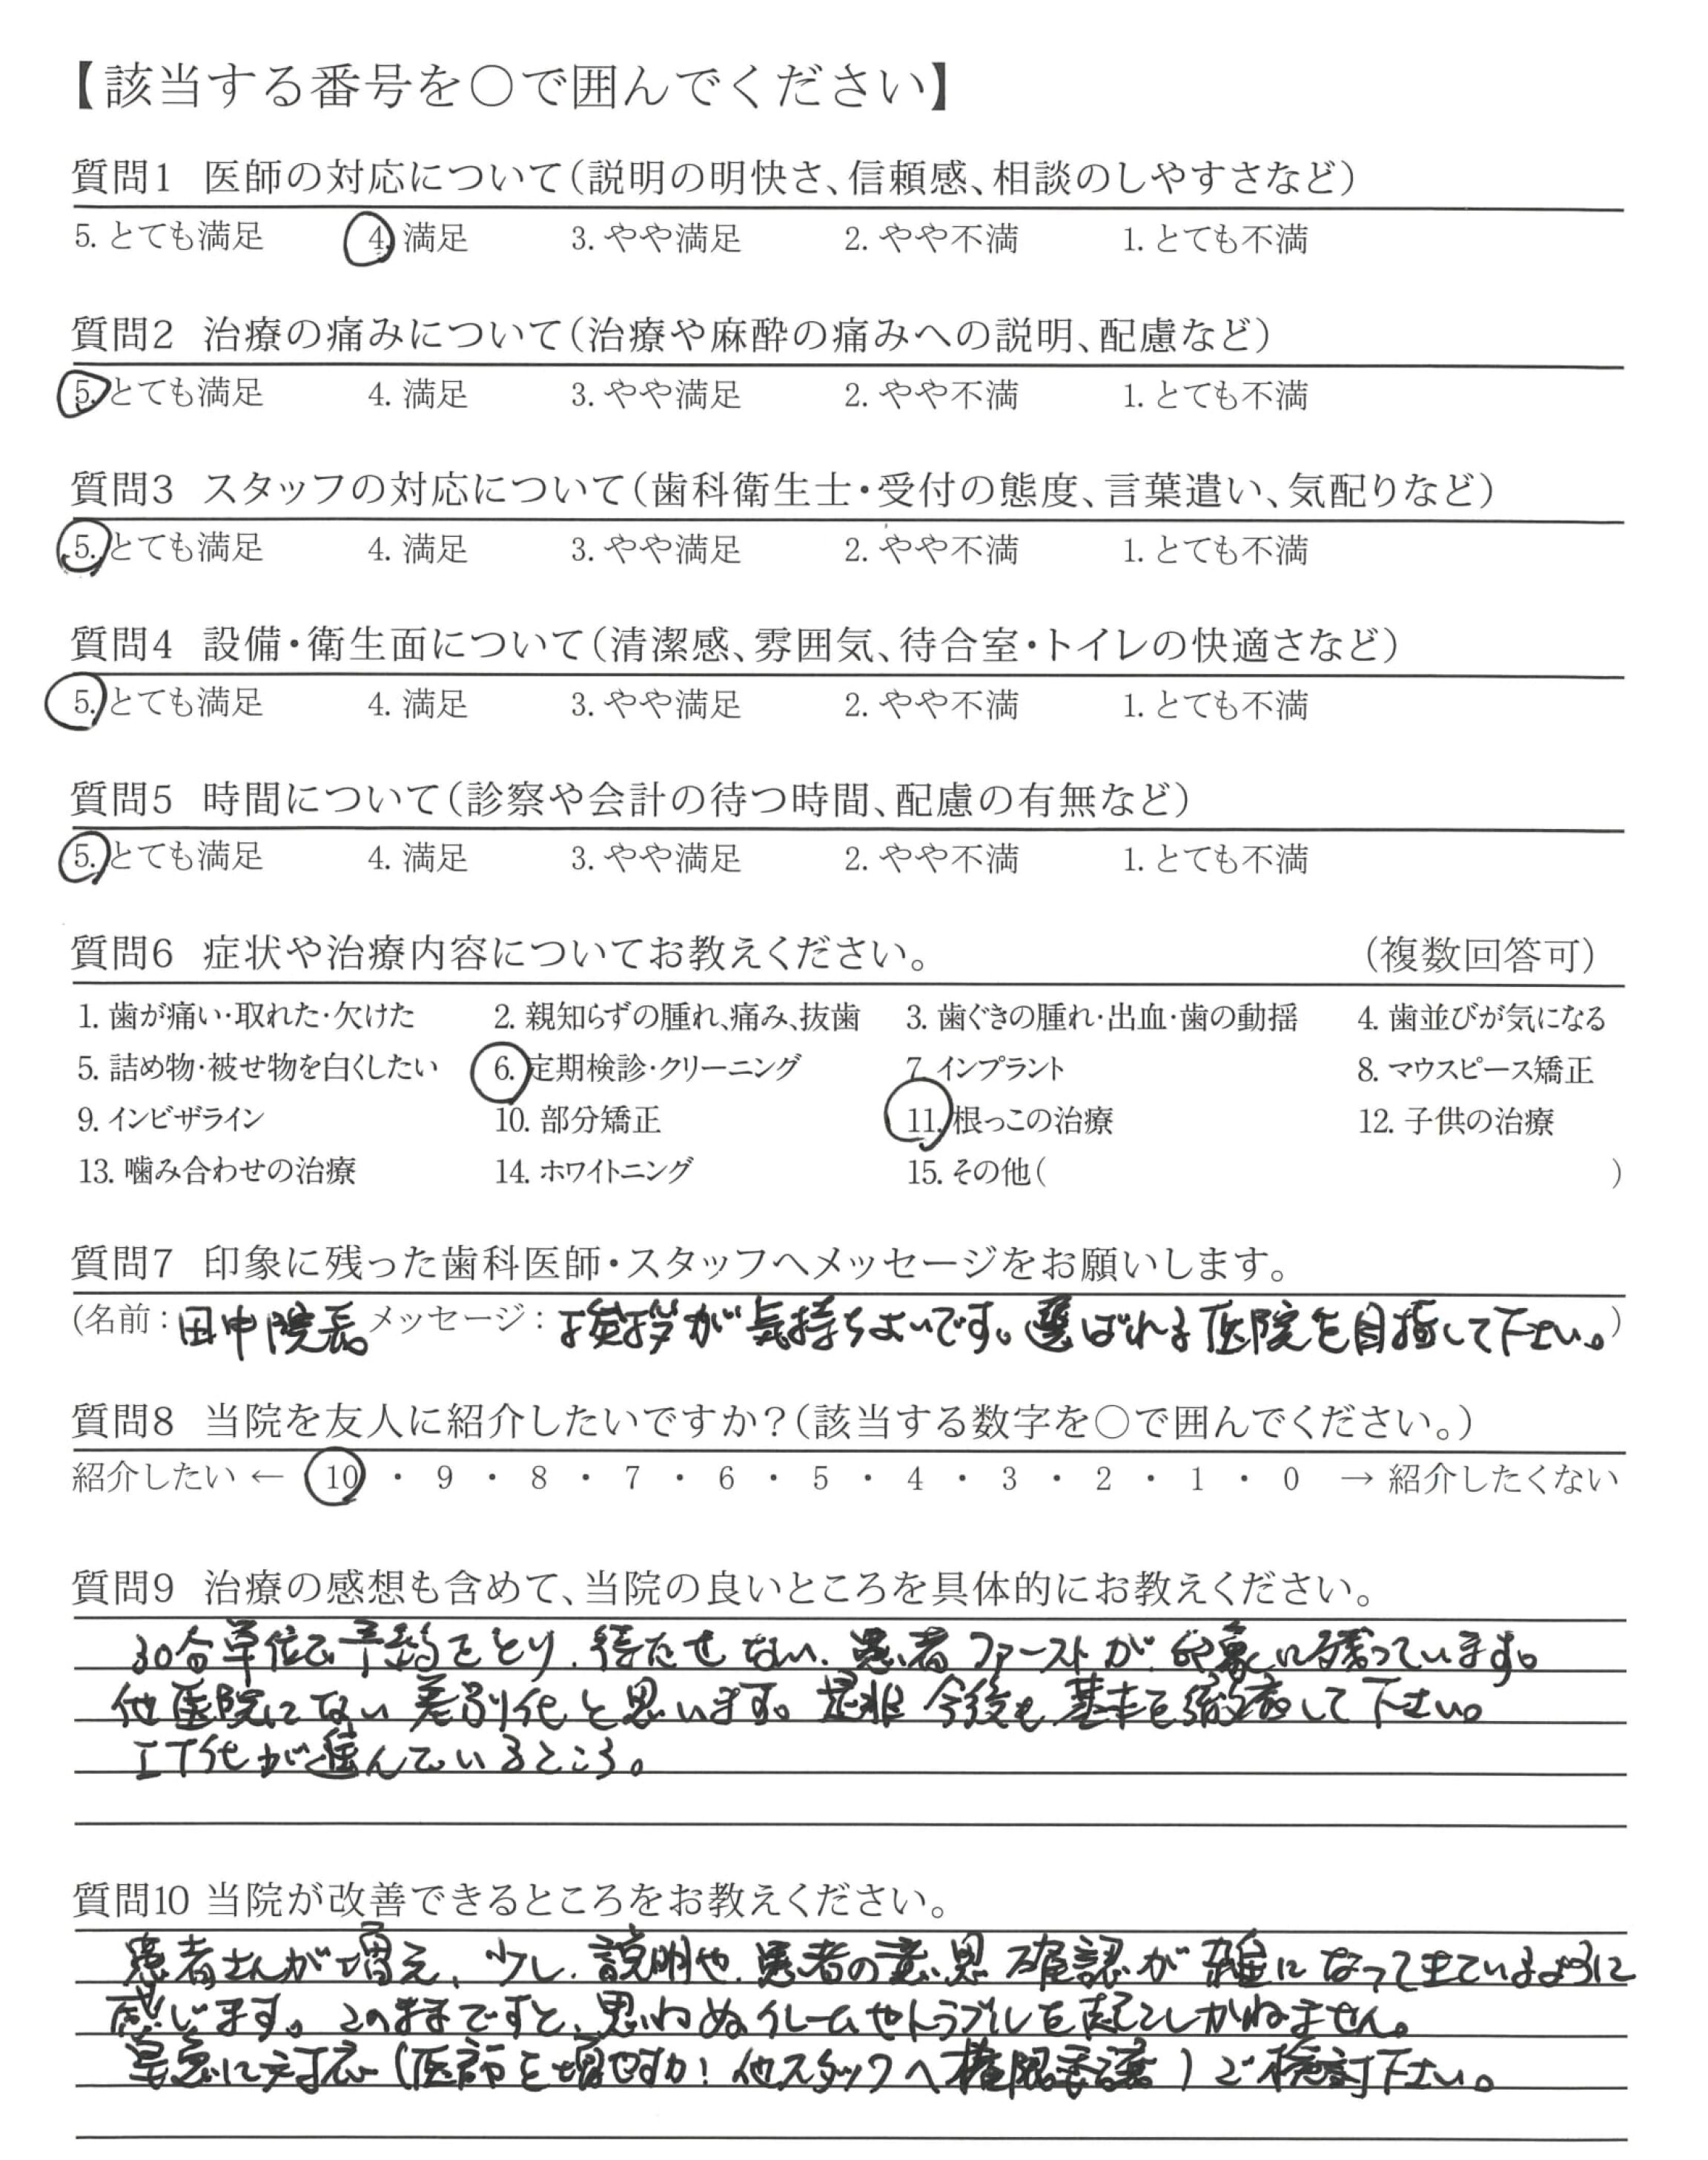 【該当する番号を○で囲んでください】
質問1 医師の対応について（説明の明快さ、信頼感、相談のしやすさなど）
5. とても満足 4. 満足 3. やや満足 2. やや不満 1. とても不満
質問2 治療の痛みについて（治療や麻酔の痛みへの説明、配慮など）
5. とても満足 4. 満足 3. やや満足 2. やや不満 1. とても不満
質問3 スタッフの対応について（歯科衛生士・受付の態度、言葉遣い、気配りなど）
5. とても満足 4. 満足 3. やや満足 2. やや不満 1. とても不満
質問4 設備・衛生面について（清潔感、雰囲気、待合室・トイレの快適さなど）
5. とても満足 4. 満足 3. やや満足 2. やや不満 1. とても不満
質問5 時間について（診察や会計の待つ時間、配慮の有無など）
5. とても満足 4. 満足 3. やや満足 2. やや不満 1. とても不満
質問6 症状や治療内容についてお教えください。 （複数回答可）
1. 歯が痛い・取れた・欠けた 2. 親知らずの腫れ、痛み、抜歯 3. 歯ぐきの腫れ・出血・歯の動揺 4. 歯並びが気になる
5. 詰め物・被せ物を白くしたい 6. 定期検診・クリーニング 7. インプラント 8. マウスピース矯正
9. インビザライン 10. 部分矯正 11. 根っこの治療 12. 子供の治療
13. 噛み合わせの治療 14. ホワイトニング 15. その他（ ）
質問7 印象に残った歯科医師・スタッフへメッセージをお願いします。
（名前：田中院長 メッセージ：挨拶が気持ちよいです。選ばれる医院を目指して下さい。）
質問8 当院を友人に紹介したいですか？（該当する数字を○で囲んでください。）
紹介したい ← 10 ・ 9 ・ 8 ・ 7 ・ 6 ・ 5 ・ 4 ・ 3 ・ 2 ・ 1 ・ 0 → 紹介したくない
質問9 治療の感想も含めて、当院の良いところを具体的にお教えください。
30分単位で予約をとり、待たせない、患者ファーストが印象に残っています。
他医院にない差別化と思います。是非今後も基本を徹底して下さい。
IT化が進んでいるところ。
質問10 当院が改善できるところをお教えください。
患者さんが増え、少し、説明や、患者の意思確認が雑になってきているように
感じます。このままですと、思わぬクレームやトラブルを起こしかねません。
早急に対応（医師を増やすか！他スタッフへ権限委譲）ご検討下さい。